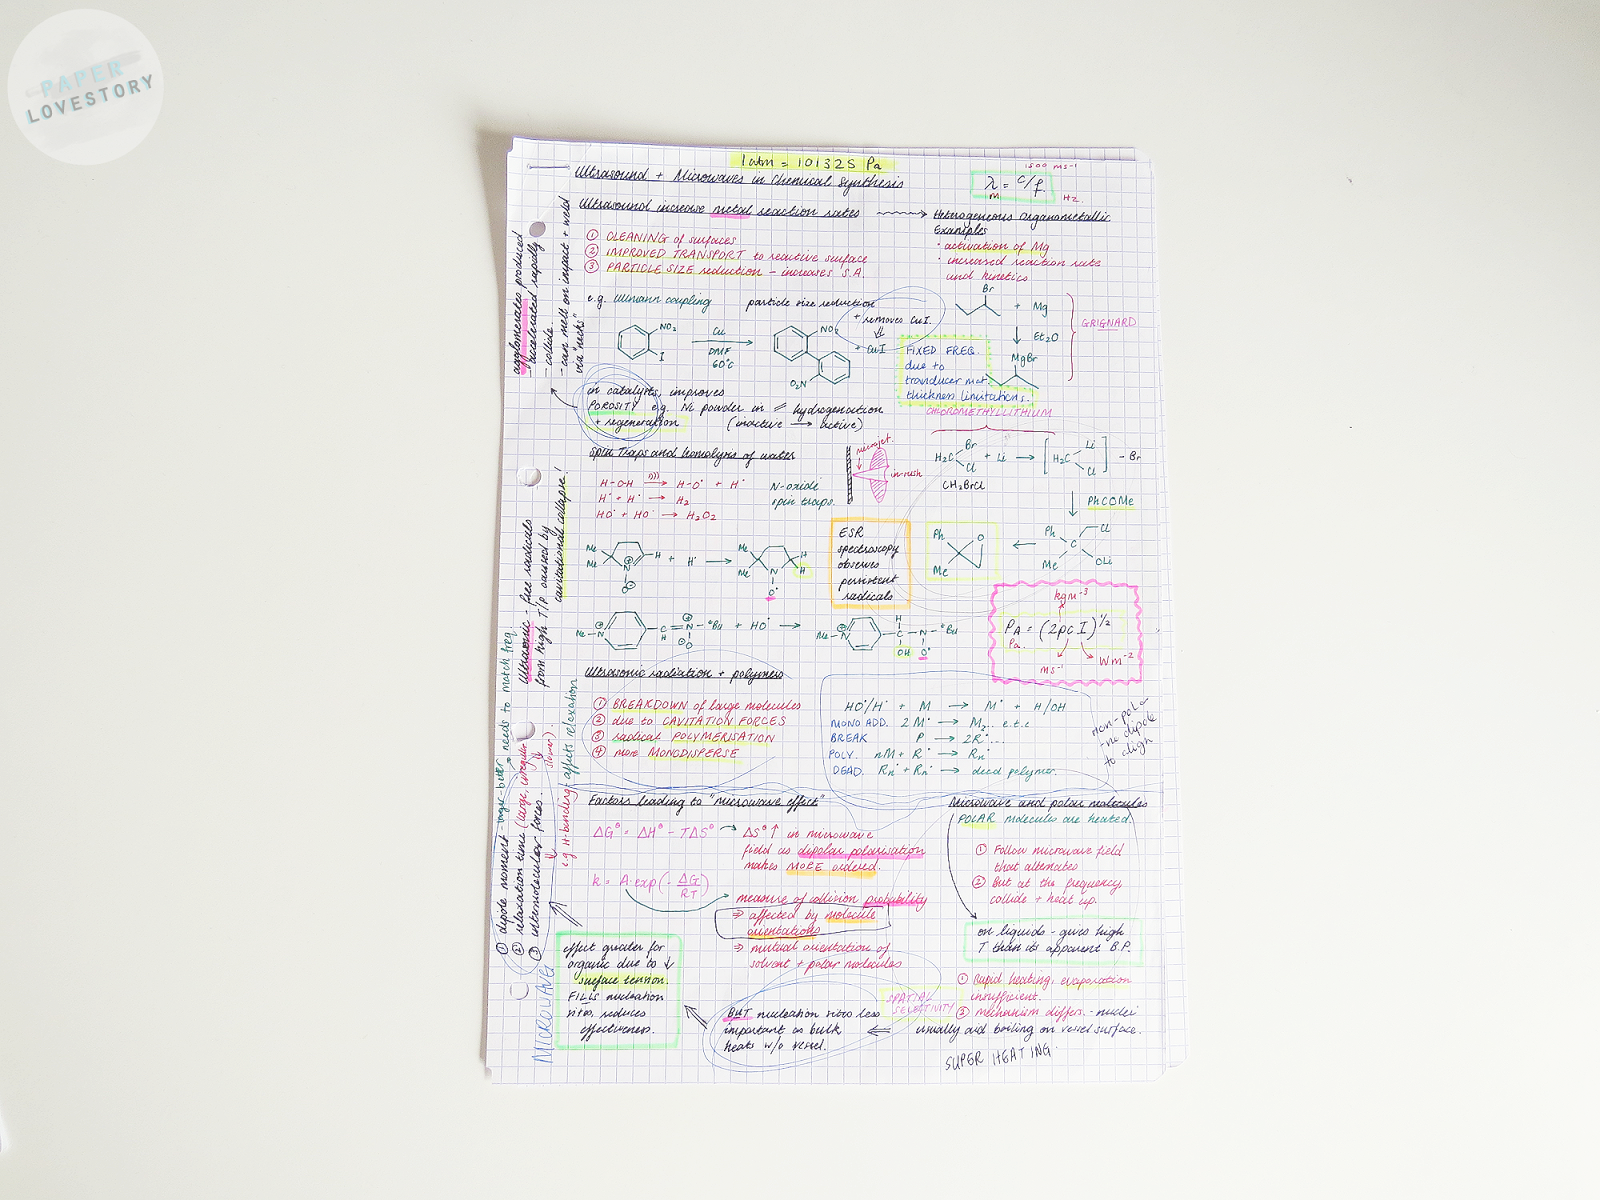 PAPER
LOVESTORY
1 atm = 101325 Pa
Ultrasound + Microwaves in Chemical Synthesis
1500 ms⁻¹
λ = c/f
m
Hz.
Ultrasound increase metal reaction rates
① CLEANING of surfaces
② IMPROVED TRANSPORT to reactive surface
③ PARTICLE SIZE reduction - increases S.A.
Heterogeneous Organometallic
Examples
· activation of Mg
· increased reaction rate
and kinetics
e.g. Ullmann coupling
particle size reduction
+ removes CuI.
NO₂
I
Cu
DMF
60°C
NO₂
O₂N
+ CuI
Br
+ Mg
Et₂O
MgBr
GRIGNARD
FIXED FREQ.
due to
tranducer mat.
thickness limitations.
in catalysts, improves
POROSITY e.g. Ni powder in hydrogenation
+ regeneration (inactive → active)
agglomerates produced
- accelerated rapidly
- collide
- can melt on impact + weld
via "necks"
CHLOROMETHYLLITHIUM
H₂C Br Cl + Li → [H₂C Li Cl] - Br
CH₂BrCl
PhCOMe
Ph Cl
C
Me OLi
Ph O
Me
Spin Traps and homolysis of water
H-O-H → H-O· + H·
H· + H· → H₂
HO· + HO· → H₂O₂
N-oxide
spin traps.
microjet.
in-rush
Me
Me
H
N
O
+ H· →
Me
Me
H
H
N
O·
ESR
spectroscopy
observes
persistent
radicals
MeN C H N ᵗBu O + HO· →
MeN H C OH N O· ᵗBu
kgm⁻³
P_A = (2ρcI)^1/2
Pa.
ms⁻¹
Wm⁻²
ultrasonic - free radicals
from high T/P caused by
cavitational collapse!
Ultrasonic radiation + polymers
① BREAKDOWN of large molecules
② due to CAVITATION FORCES
③ radical POLYMERISATION
④ more MONODISPERSE
HO·/H· + M → M· + H/OH
MONO ADD. 2M· → M₂.. e.t.c
BREAK P → 2R·...
POLY. nM + R· → Rn·
DEAD. Rn· + Rn· → dead polymer.
non-polar
- no dipole
to align
Factors leading to "microwave effect"
ΔG° = ΔH° - TΔS°
ΔS° ↑ in microwave
field as dipolar polarisation
makes MORE ordered.
k = A exp(-ΔG/RT)
measure of collision probability
⇒ affected by molecule
orientations
⇒ mutual orientation of
solvent + polar molecules
Microwave and polar molecules
POLAR molecules are heated.
① Follow microwave field
that alternates
② But at the frequency,
collide + heat up.
on liquids - gives high
T than its apparent B.P.
① Rapid heating, evaporation
insufficient.
② mechanism differs. - nuclei
usually aid boiling on vessel surface.
SUPER HEATING.
SPATIAL
SELECTIVITY
BUT nucleation sites less
important as bulk
heats w/o vessel.
effect greater for
organic due to ↓
surface tension.
FILLS nucleation
sites, reduces
effectiveness.
MICROWAVE
① dipole moment - larger - better → needs to match freq.
② relaxation time (large, irregular slower).
③ intermolecular forces.
e.g H-binding: affects relaxation